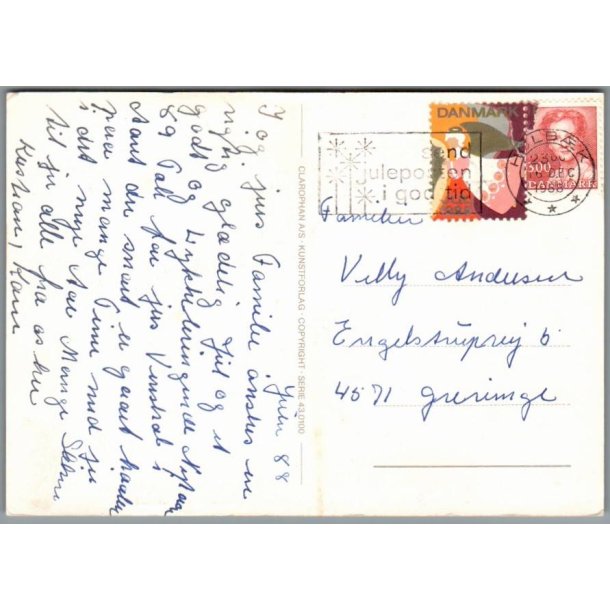 Julen 88
I og jers Familie ønskes en
rigtig glædelig Jul og et
godt og Lykkebringende Nytaar
89 Tak for jers Venskab i
Aaret der snart er gaaet haaber
paa mange Timer med jer
i det nye Aar Mange Hilsner
til jer alle fra os her
Kristian, Karen
CLAROPHAN A/S KUNSTFORLAG · COPYRIGHT · SERIE 43.0100
DANMARK
send
juleposten
i god tid
HOLBÆK
DEC
1988
300
DANMARK
Familien
Velly Andersen
Engelstrupvej 6
4571 Grevinge